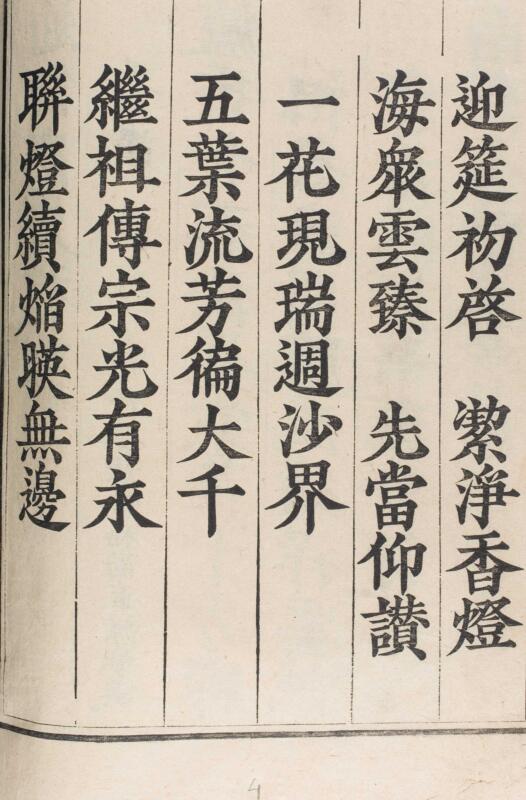 迎筵初啓　潔淨香燈
海衆雲臻　先當仰讚
一花現瑞週沙界
五葉流芳徧大千
繼祖傳宗光有永
聯燈續焔暎無邊
4